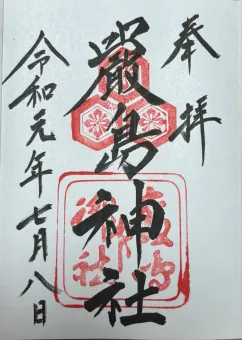 奉拝
嚴島神社
令和元年七月八日
嚴島神社